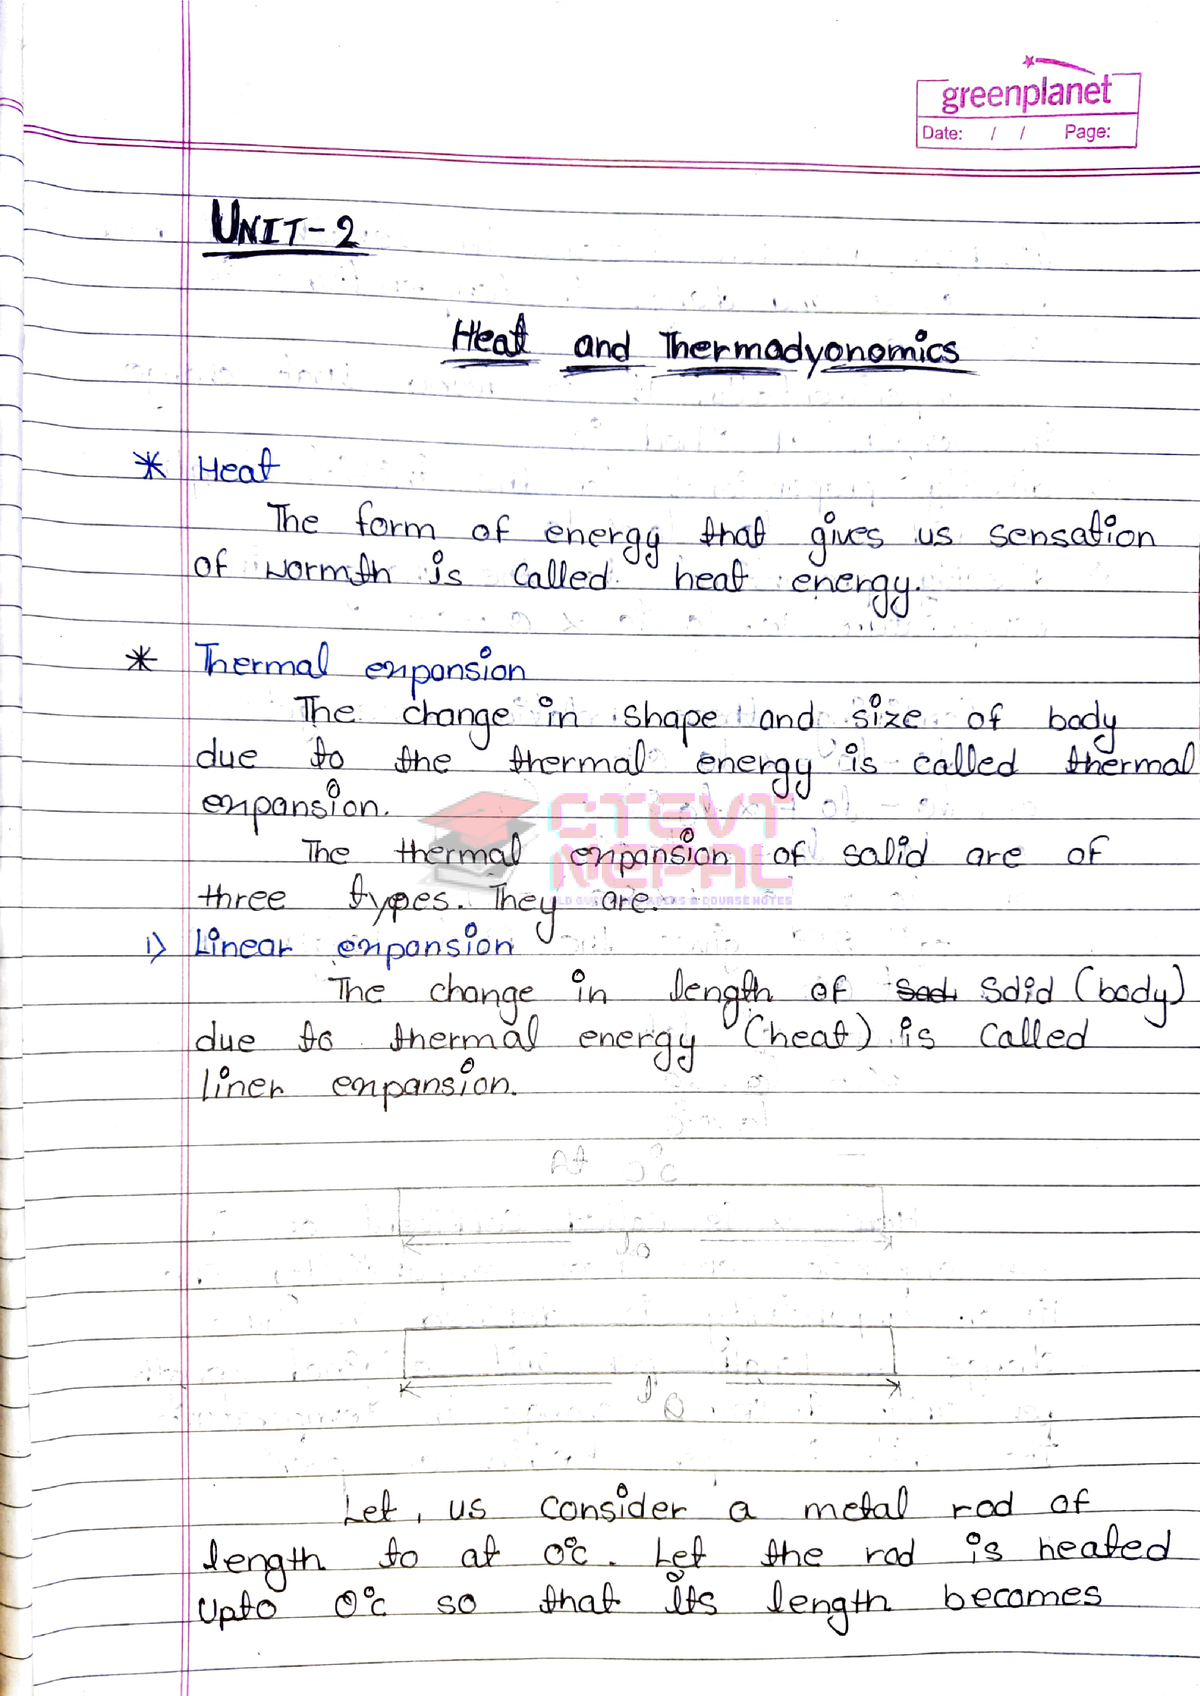 greenplanet
Date: / / Page:
UNIT-2
Heat and Thermadyonomics
* Heat
The form of energy that gives us sensation
of wormth is called heat energy.
* Thermal expansion
The change in shape and size of body
due to the thermal energy is called thermal
expansion.
CTEVT
The thermal expansion of solid are of
NEPAL
three types. They are.
i) Linear expansion
The change in length of solid (body)
due to thermal energy (heat) is called
liner expansion.
At 0°c
l0
Let, us consider a metal rod of
length to at 0°c. Let the rod is heated
upto θ°c so that its length becomes